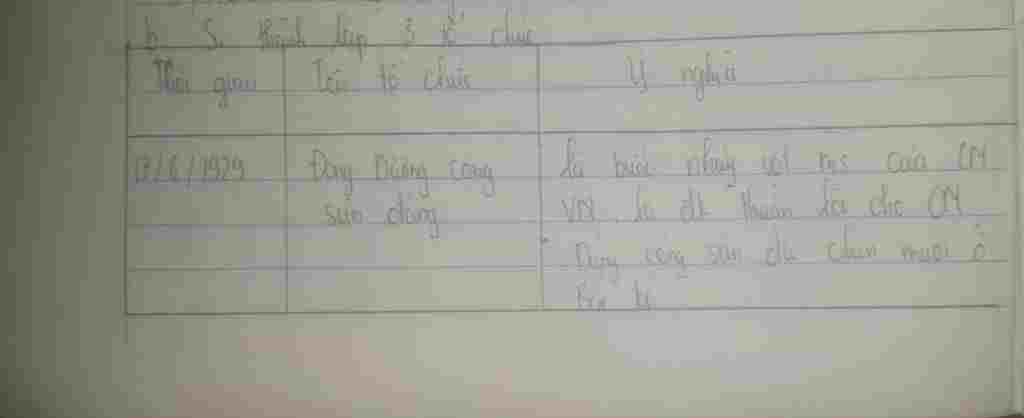 b. S. thành lập 3 tổ chức
Thời gian Tên tổ chức Ý nghĩa
17/6/1929 Đông Dương cộng là bước nhảy vọt của CM
sản đảng VN, là đk thuận lợi cho CM
Đảng cộng sản đã chín muồi ở